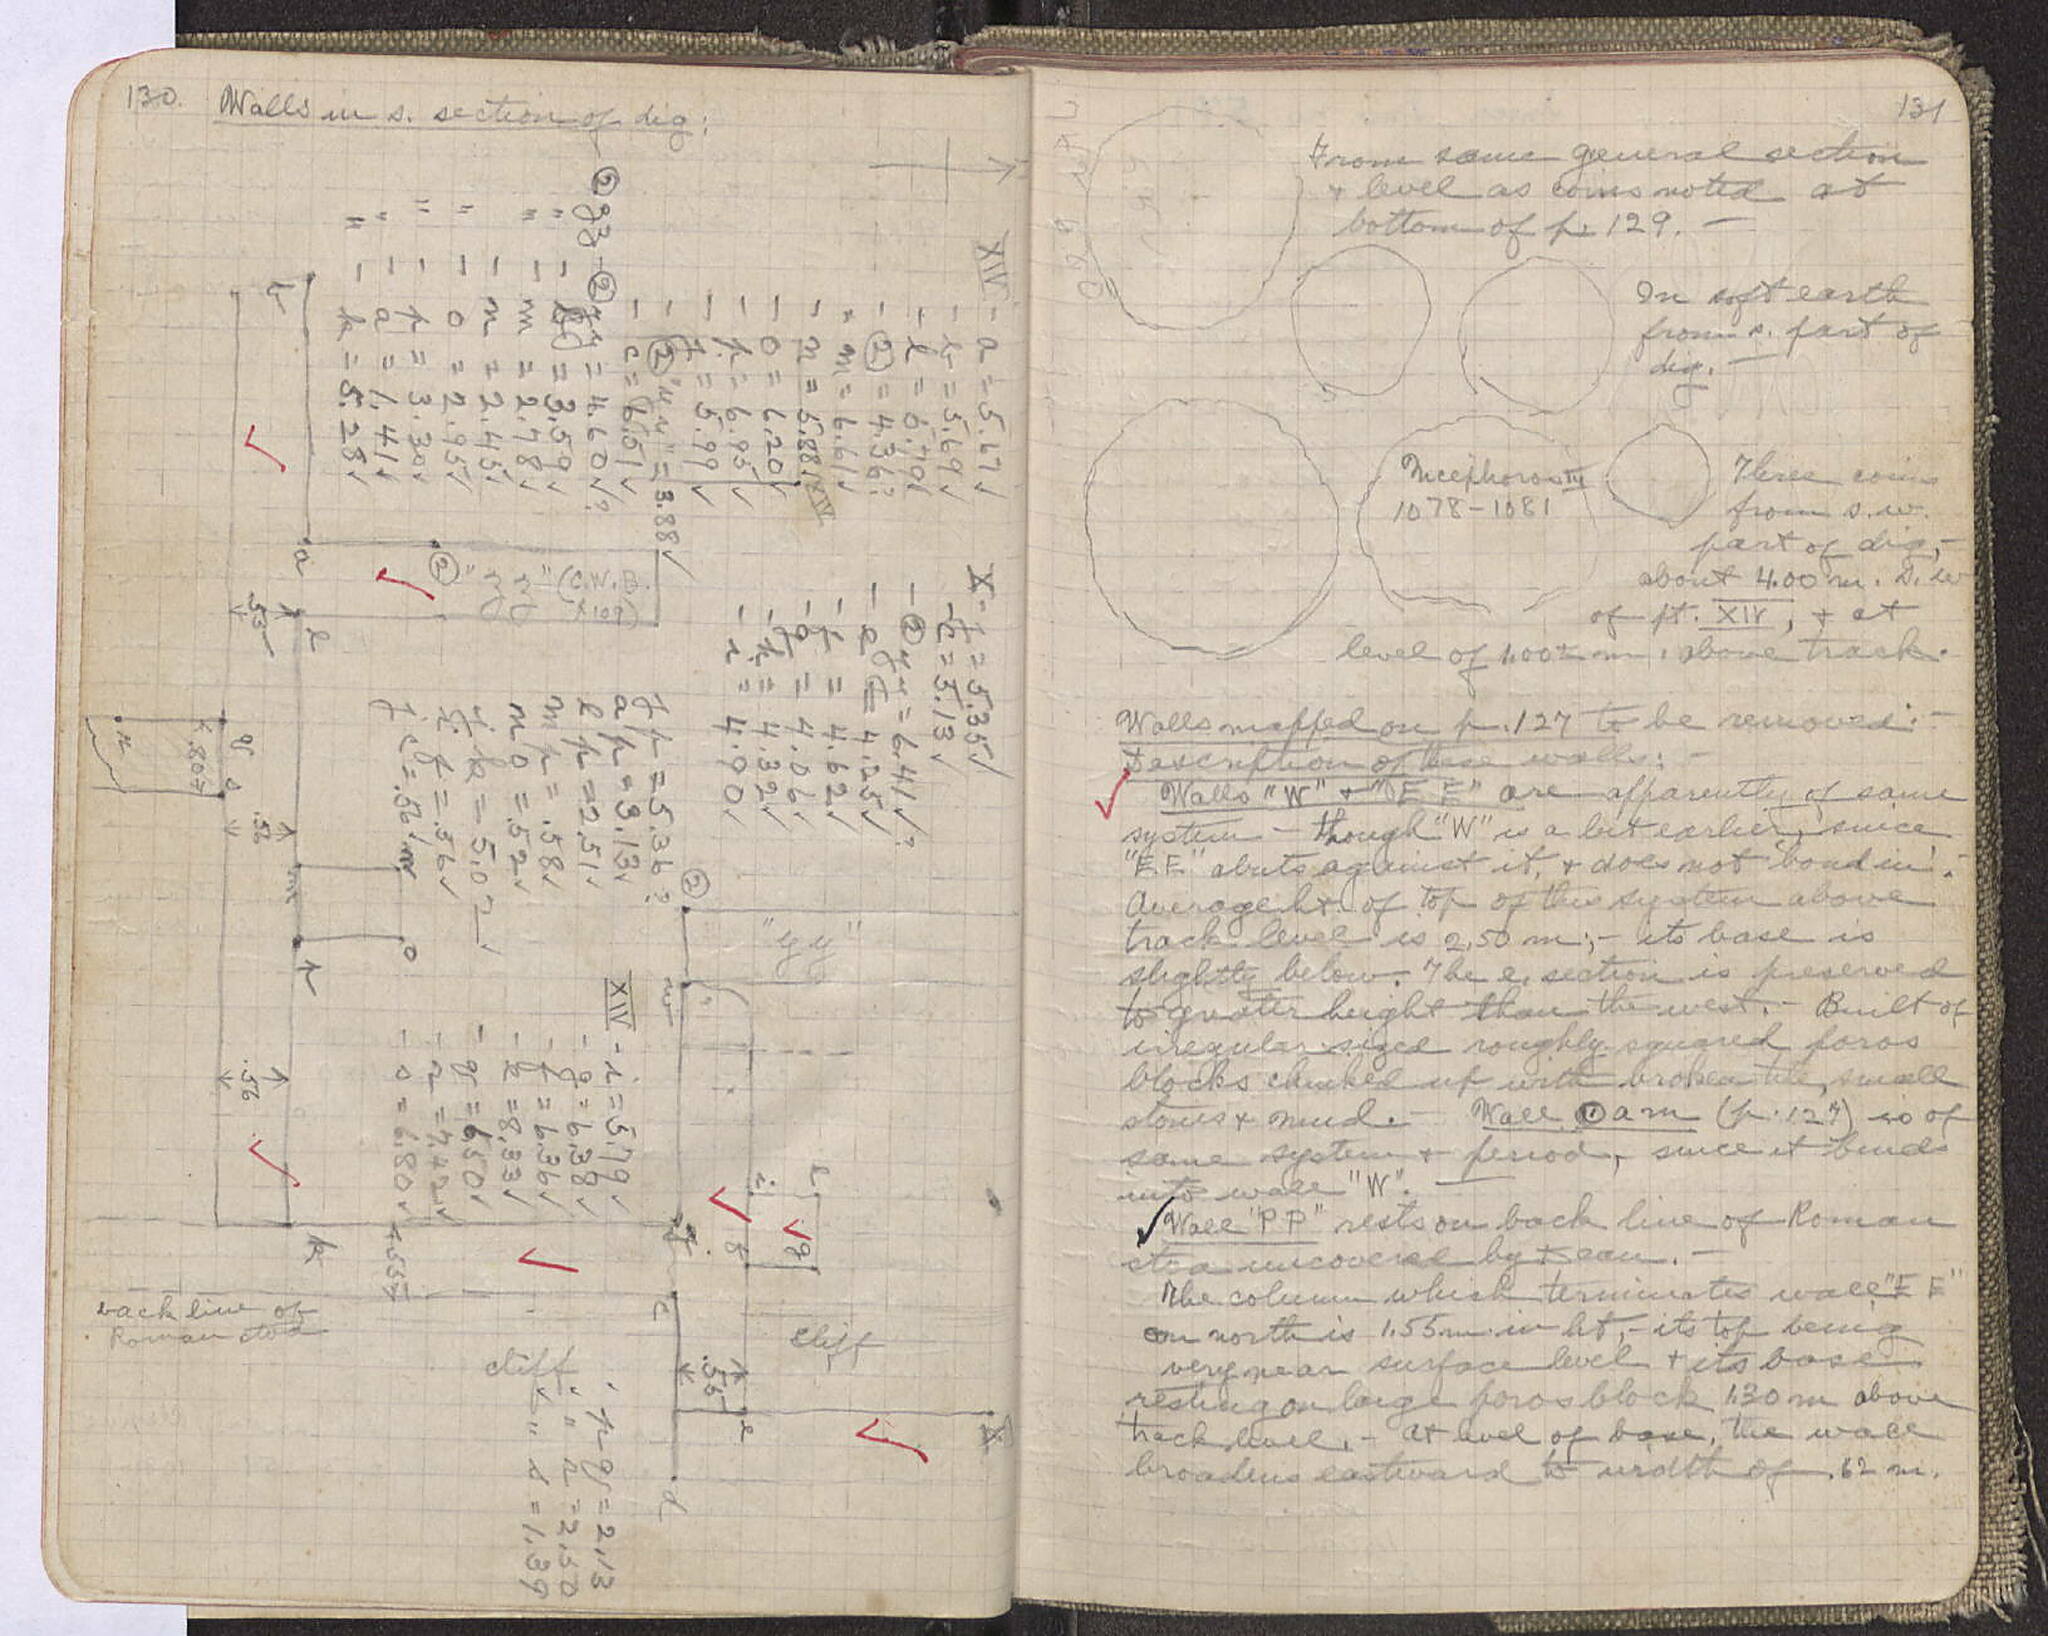 130.
Walls in s. section of dig:
XIV - a = 5.67 ✓
- b = 5.69 ✓
- ② = 4.36 ?
- m = 6.61 ✓
- n = 5.88 ✓
- o = 6.20 ✓
- p = 6.95 ✓
- f = 5.99 ✓
- ② "yy" = 3.88 ✓
- c = 6.51 ✓
" - m = 2.78 ✓
" - n = 2.45 ✓
" - o = 2.95 ✓
" - p = 3.30 ✓
" - a = 1.41 ✓
" - k = 5.28 ✓
X - f = 5.35 ✓
- c = 5.13 ✓
- ② yy = 6.41 ✓ ?
- p = 4.62 ✓
- g = 4.06 ✓
- h = 4.32 ✓
- i = 4.90 ✓
f p = 5.36 ?
a p = 3.13 ✓
l p = 2.51 ✓
m p = .58 ✓
n o = .52 ✓
f c = .56
XIV - i = 5.79 ✓
- g = 6.38 ✓
- f = 6.36 ✓
- k = 8.33 ✓
- q = 6.50 ✓
- s = 6.80 ✓
" p q = 2.13
" " r = 2.50
" " s = 1.39
b
a
② "yy" (C.W.B. p. 109)
.53
l
r
.80
q
s
.56
m
n
o
p
.56
k
② "yy"
i
h
g
f
c
.55
e
d
X
cliff
cliff
back line of
Roman stoa
131
From same general section
+ level as coins noted at
bottom of p. 129. –
In soft earth
from s. part of
dig. –
Nicephoros III
1078-1081
Three coins
from s.w.
part of dig, –
about 4.00 m. S.W
of pt. XIV, + at
level of 1.00± m. above track.
Walls mapped on p. 127 to be removed: –
Description of these walls: –
Walls "W" + "EE" are apparently of same
system – though "W" is a bit earlier, since
"EE" abuts against it, + does not 'bond in'. –
Average ht. of top of this system above
track level is 2.50 m; – its base is
slightly below. The e. section is preserved
to greater height than the west. – Built of
irregular sized roughly squared poros
blocks chinked up with broken tile, small
stones + mud. – Wall ① a m (p. 127) is of
same system + period, since it binds
into wall "W". –
Wall "PP" rests on back line of Roman
stoa uncovered by Dean. –
The column which terminates wall "EE"
on north is 1.55 m. in ht, – its top being
very near surface level + its base
resting on large poros block 1.30 m above
track level. – At level of base, the wall
broadens eastward to width of .62 m.